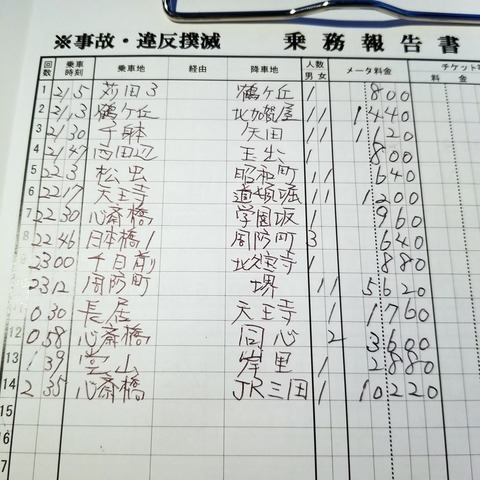 ※事故・違反撲滅 乗務報告書
回数 乗車時刻 乗車地 経由 降車地 人数 男 女 メータ料金 チケット 料金
1 21 5 苅田3 鶴ケ丘 1 800
2 鶴ケ丘 北加賀屋 11 1440
3 21 30 千躰 矢田 11 1120
4 21 47 西田辺 玉出 1 800
5 22 3 松虫 昭和町 11 640
6 22 17 天王寺 道頓堀 11 1200
7 22 30 心斎橋 学園坂 1 960
8 22 46 日本橋1 周防町 3 640
9 23 00 千日前 北久宝寺 1 880
23 12 周防町 堺 11 5620
0 30 長居 天王寺 1 1760
12 0 58 心斎橋 同心 2 3600
13 1 39 堂山 岸里 1 2880
14 2 35 心斎橋 JR三田 1 10220
15
16